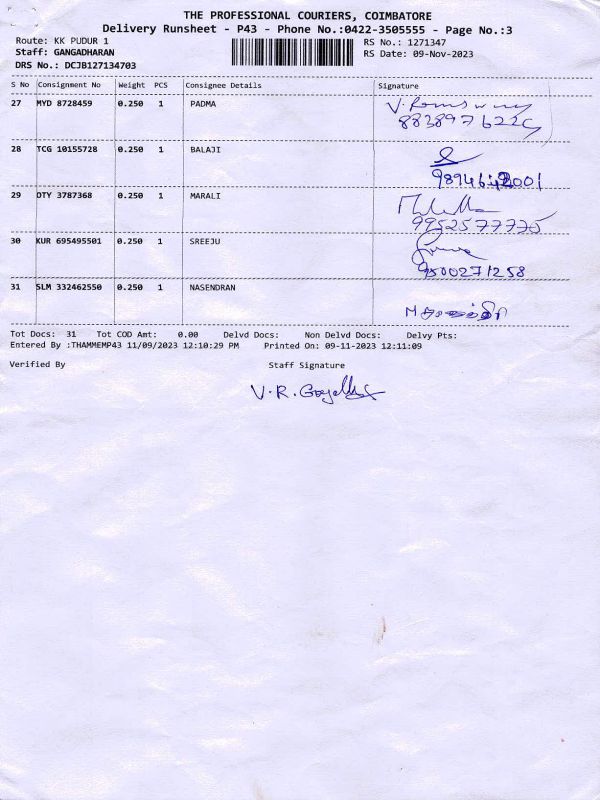 THE PROFESSIONAL COURIERS, COIMBATORE
Delivery Runsheet - P43 - Phone No.:0422-3505555 - Page No.:3
Route: KK PUDUR 1 RS No.: 1271347
Staff: GANGADHARAN RS Date: 09-Nov-2023
DRS No.: DCJB127134703
S No Consignment No Weight PCS Consignee Details Signature
27 MYD 8728459 0.250 1 PADMA
28 TCG 10155728 0.250 1 BALAJI
29 DTY 3787368 0.250 1 MARALI
9952577775
30 KUR 695495501 0.250 1 SREEJU
9500271258
31 SLM 332462550 0.250 1 NASENDRAN
Tot Docs: 31 Tot COD Amt: 0.00 Delvd Docs: Non Delvd Docs: Delvy Pts:
Entered By :THAMMEMP43 11/09/2023 12:10:29 PM Printed On: 09-11-2023 12:11:09
Verified By Staff Signature
V.R.